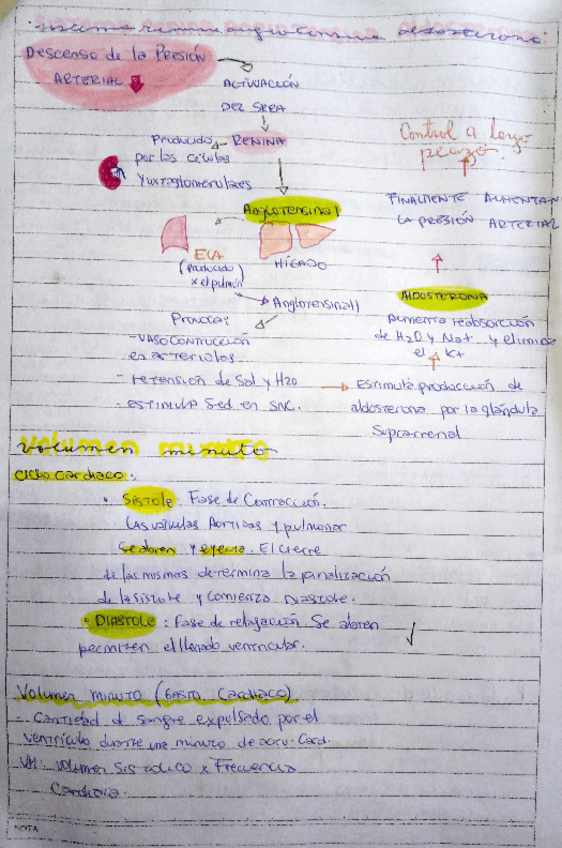 Sistema renina angiotensina aldosterona:
Descenso de la Presión
ARTERIAL
ACTIVACIÓN
DEL SRRA
RENINA
Producido
por las células
Yuxtaglomerulares
Angiotensina I
HÍGADO
ECA
(Producido
x el pulmón)
Angiotensina II
Provoca:
- VASOCONTRUCCIÓN
en arteriolas
- retensión de Sal y H2O
- ESTIMULA Sed en SNC.
Estimula producción de
aldosterona por la glándula
Suprarrenal
ALDOSTERONA
Aumenta reabsorción
de H2O y Na+ y elimina
el K+
FINALMENTE AUMENTAN
LA PRESIÓN ARTERIAL
Control a largo
plazo.
Volumen minuto
Ciclo Cardiaco:
• SÍSTOLE. Fase de Contracción.
Las válvulas Aorticas y pulmonar
se abren y eyecta. El cierre
de las mismas determina la finalización
de la sistole y comienza Diastole.
• DIASTOLE: Fase de relajación Se abren
permiten el llenado ventricular.
Volumen minuto (Gasto Cardiaco)
- Cantidad de sangre expulsado por el
ventrículo durante une minuto de Card.
VM: Volumen Sistolico x Frecuencia
Cardiaca.
NOTA